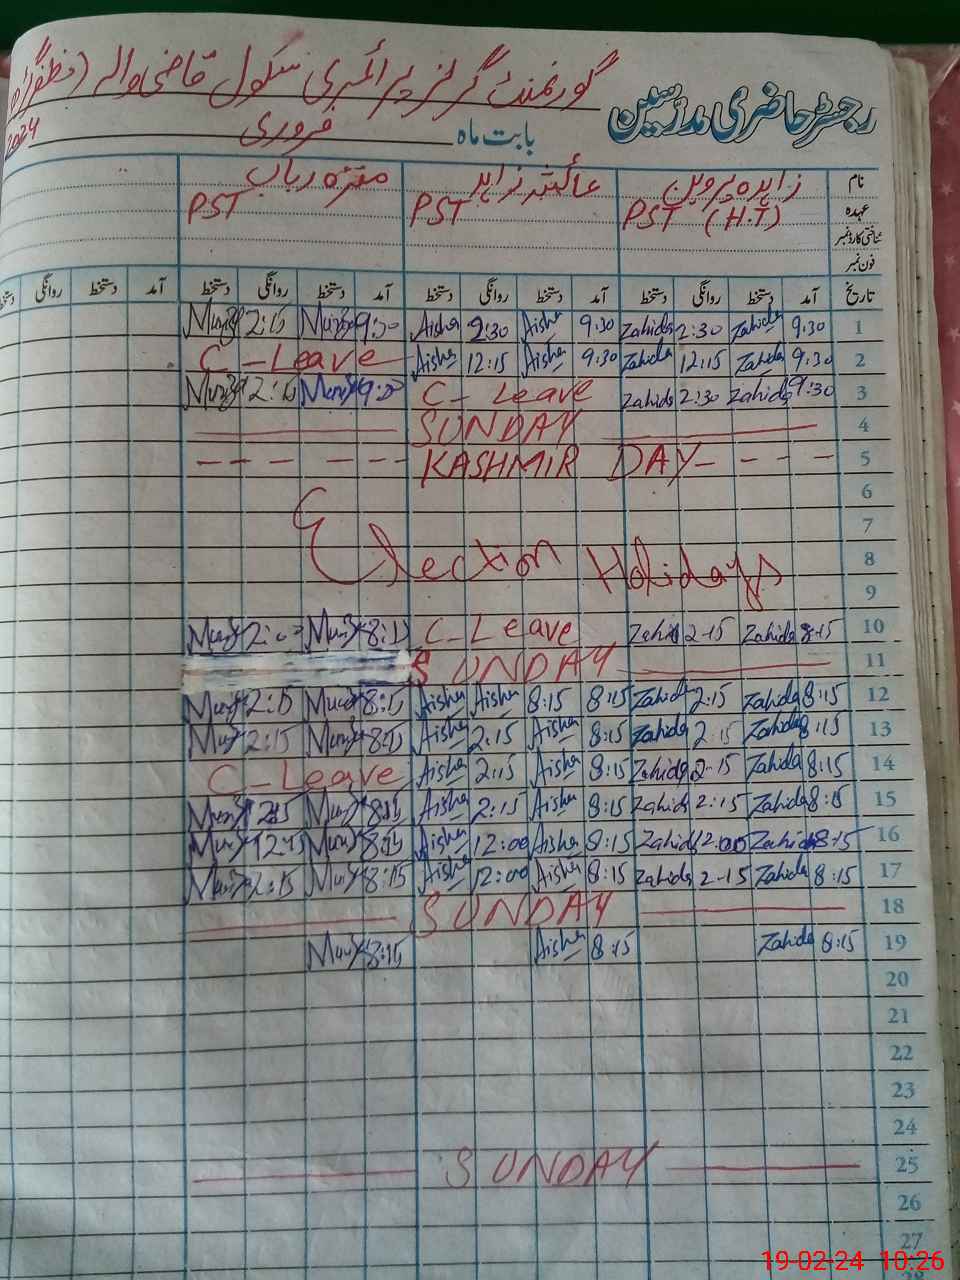 گورنمنٹ گرلز پرائمری سکول قاضی والہ
رجسٹر حاضری مدرسین
بابت ماہ فروری 2024
نام زاہدہ پروین عائشہ زاہد منزہ رباب
عہدہ PST (H.T) PST PST
شناختی کارڈ نمبر
فون نمبر
تاریخ آمد دستخط روانگی دستخط آمد دستخط روانگی دستخط آمد دستخط روانگی دستخط آمد دستخط روانگی دستخط
1 9:30 Zahida 2:30 Zahida 9:30 Aisha 2:30 Aisha 9:30 2:15
2 9:30 Zahida 12:15 Zahida 9:30 Aisha 12:15 Aisha C-Leave
3 9:30 Zahida 2:30 Zahida C-Leave
4 SUNDAY
5 KASHMIR DAY
6
7
8 Election Holidays
9
10 8:15 Zahida 2:15 Zahida C-Leave
11 SUNDAY
12 8:15 Zahida 2:15 Zahida 8:15 8:15 Aisha Aisha 8:15 2:15
13 8:15 Zahida 2:15 Zahida 8:15 Aisha 2:15 Aisha 8:15 2:15
14 8:15 Zahida 2:15 Zahida 8:15 Aisha 2:15 Aisha C-Leave
15 8:15 Zahida 2:15 Zahida 8:15 Aisha 2:15 Aisha 8:15
16 8:15 Zahida Zahida 8:15 Aisha 12:00 Aisha 8:15
17 8:15 Zahida 2:15 Zahida 8:15 Aisha 12:00 Aisha 8:15 2:15
18 SUNDAY
19 8:15 Zahida 8:15 Aisha 8:15
20
21
22
23
24
25 SUNDAY
26
27
28
19-02-24 10:26